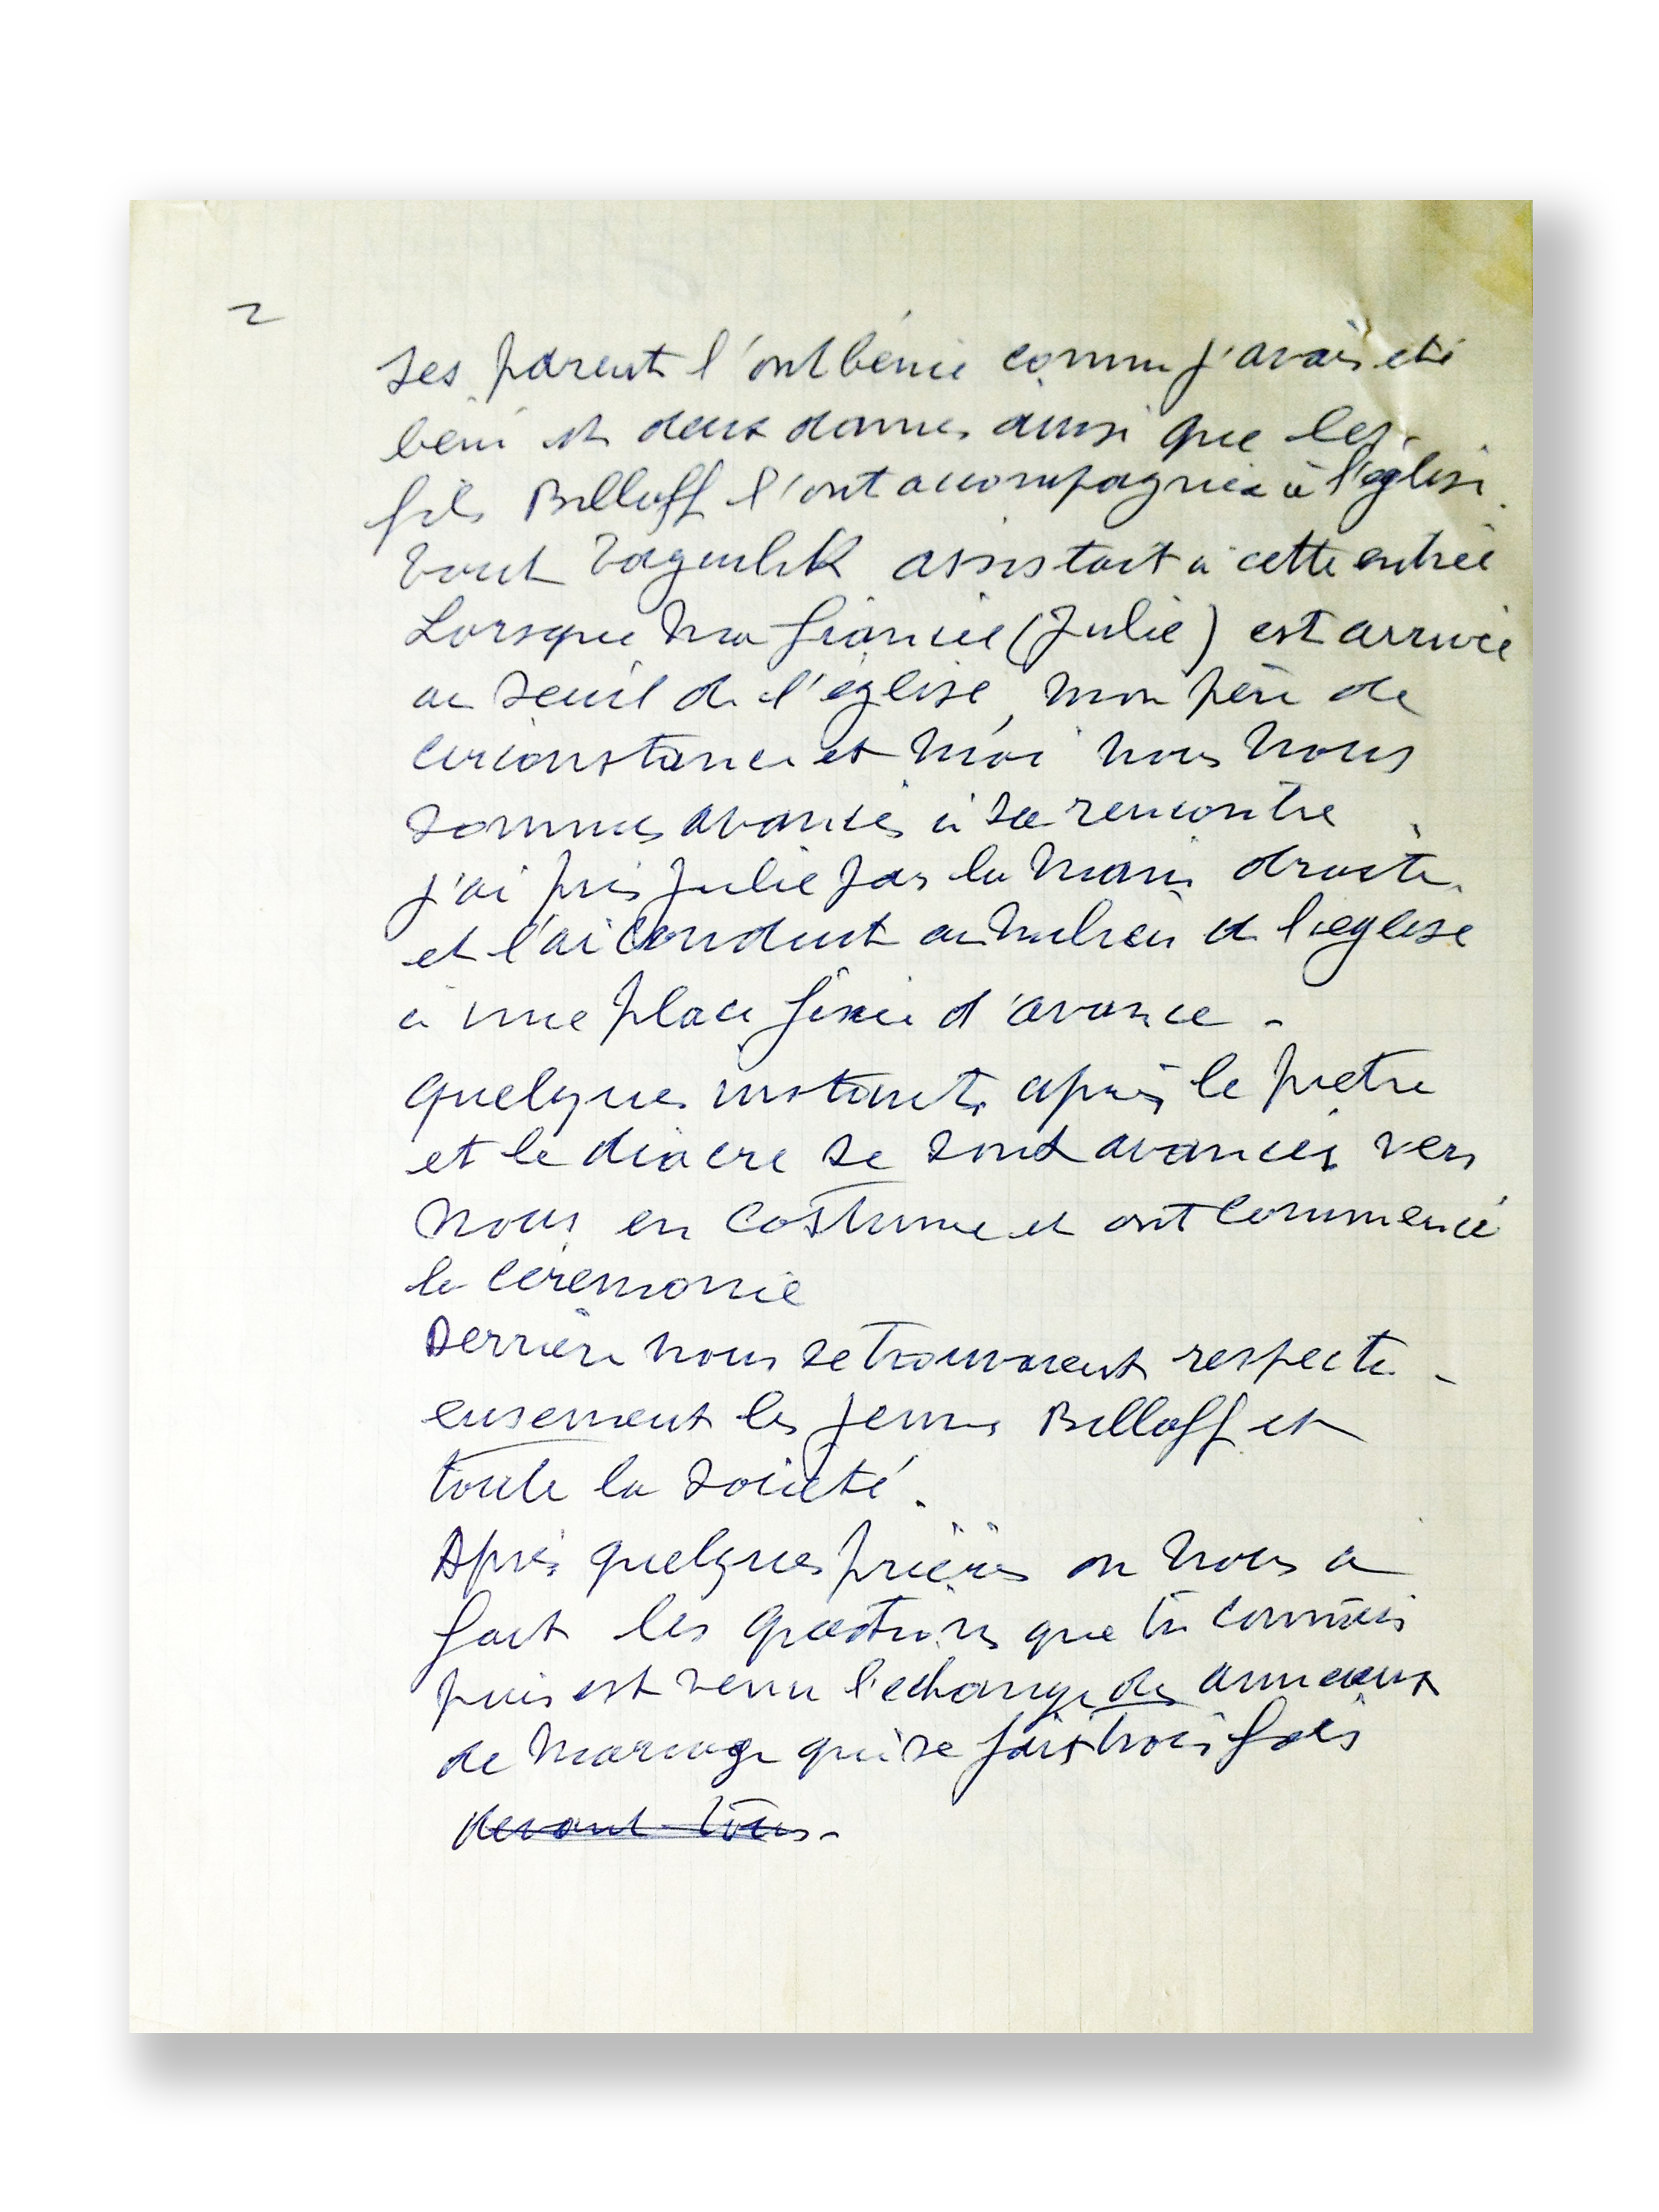 2
Ses parent l'ont bénie comme j'avais été
béni et deux dames ainsi que les
fils Billoff l'ont accompagnée à l'église.
tout Zagulik assistait à cette entrée
Lorsque ma fiancée (Julie) est arrivée
au seuil de l'église, mon père de
circonstance et moi nous nous
sommes avancés à sa rencontre
j'ai pris Julie par la main droite
et l'ai conduit au milieu de l'église
à une place fixée d'avance -
quelques instants après le prêtre
et le diacre se sont avancés vers
nous en costume et ont commencé
la cérémonie
Derrière nous se trouvaient respectu-
eusement les jeunes Billoff et
toute la société.
Après quelques prières on nous a
fait les questions que tu connais
puis est venu l'echange des anneaux
de mariage qui se fait trois fois
devant tous.-